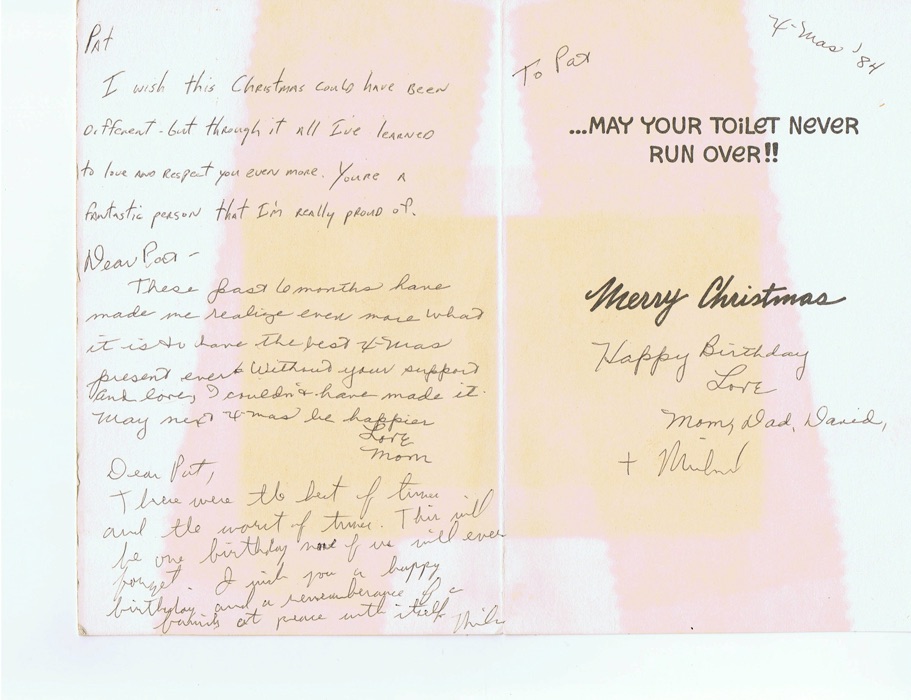 Pat
I wish this Christmas could have been
different - but through it all I've learned
to love and respect you even more. Youre a
fantastic person that I'm really proud of.
Dear Pat -
These past 6 months have
made me realize even more what
it is to have the best X-Mas
present ever. Without your support
and love, I couldn't have made it.
May next X-mas be happier
Love
Mom
Dear Pat,
These were the best of times
and the worst of times. This will
be one birthday none of us will ever
forget. I wish you a happy
birthday and a rememberance of a
family at peace with itself
To Pat
X-Mas '84
...MAY YOUR TOiLET NeVeR
RUN OVeR!!
Merry Christmas
Happy Birthday
Love
Mom, Dad, David,
+